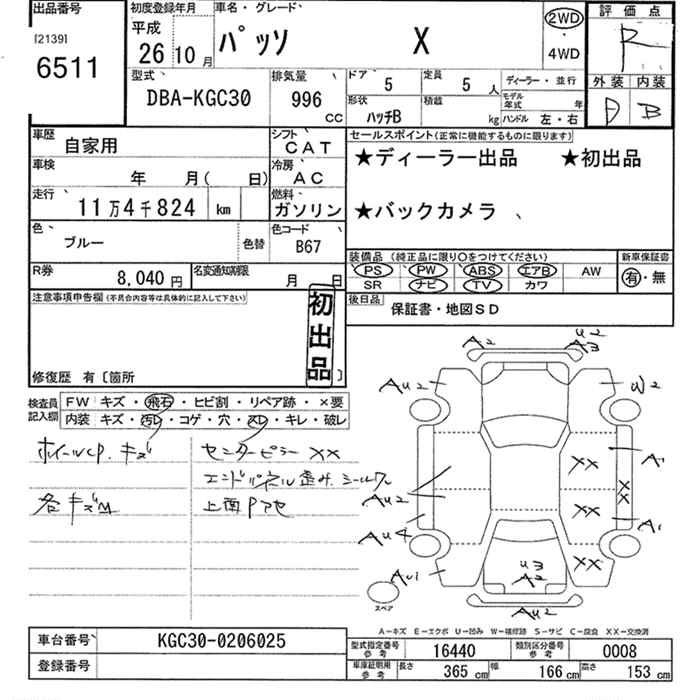 出品番号
[2139]
6511
初度登録年月
平成
26年10月
車名・グレード
パッソ X
2WD
・
4WD
評価点
R
外装 内装
D B
型式
DBA-KGC30
排気量
996
CC
ドア
5
定員
5人
ディーラー・並行
形状
ハッチB
積載
kg
モデル年式
年
ハンドル 左・右
車歴
自家用
シフト
CAT
車検
年 月( 日)
冷房
AC
走行
11万4千824 km
燃料
ガソリン
色
ブルー
色替
色コード
B67
R券
8,040円
名変通知期限
月 日
セールスポイント(正常に機能するものに限ります)
★ディーラー出品 ★初出品
★バックカメラ
装備品 (純正品に限り○をつけてください)
PS PW ABS エアB AW
SR ナビ TV カワ
新車保証書
有・無
後日品
保証書・地図SD
注意事項申告欄 (不具合内容等は具体的に記入して下さい)
初出品
修復歴 有〔箇所 〕
検査員記入欄
FW キズ・飛石・ヒビ割・リペア跡・×要
内装 キズ・汚レ・コゲ・穴・スレ・キレ・破レ
ホイールCP.キズ
センターピラー XX
エンドパネル歪み.シールワレ
各キズM
A2
U2
A3
AU2
W2
XX
A1
XX
AU2
XX
A1
AU4
XX
U3
A2
AU1
AU2
スペア
A－キズ E－エクボ U－凹み W－補修跡 S－サビ C－腐食 XX－交換済
車台番号
KGC30-0206025
登録番号
型式指定番号 参考
16440
類別区分番号 参考
0008
車庫証明用 参考
長さ 365 cm
幅 166 cm
高さ 153 cm